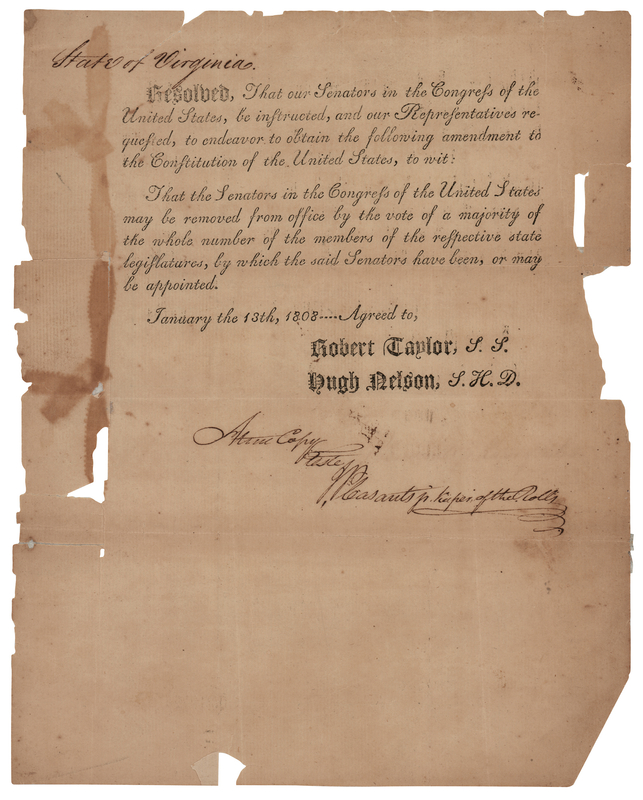 State of Virginia.
Resolved, That our Senators in the Congreſs of the
United States, be inſtructed, and our Repreſentatives re-
queſted, to endeavor to obtain the following amendment to
the Conſtitution of the United States, to wit:
That the Senators in the Congreſs of the United States
may be removed from office by the vote of a majority of
the whole number of the members of the reſpective state
legiſlatures, by which the said Senators have been, or may
be appointed.
January the 13th, 1808----Agreed to,
Robert Taylor, S. S.
Hugh Nelson, S. H. D.
A true Copy
Teste
Pleasants jr. keeper of the Rolls